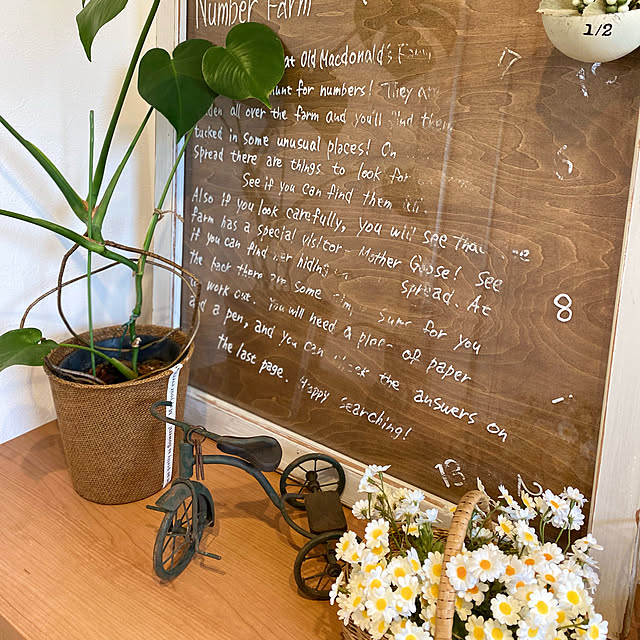 Number Farm
1/2
at Old Macdonald's Farm
17
hunt for numbers! They
all over the farm and you'll find them
tucked in some unusual places! On
spread there are things to look for
See if you can find them
6
Also if you look carefully, you will see that
farm has a special visitor - Mother Goose! See
if you can find her hiding spread. At
the back there are some sums for you
8
work out. You will need a piece of paper
a pen, and you can check the answers on
the last page. Happy searching!
18
2